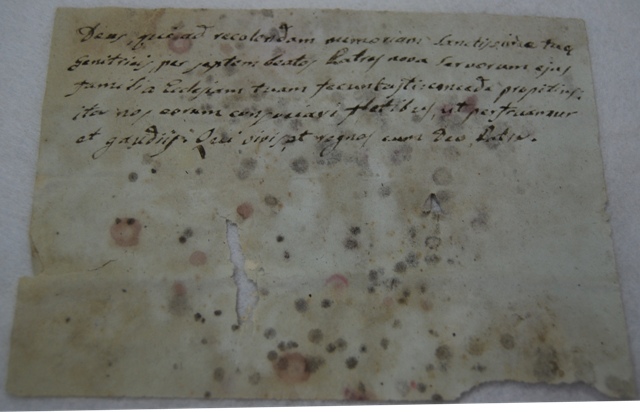 Deus, qui ad recolendam memoriam Sanctissimæ tuæ
Genitricis, per septem beatos Patres nova Servorum ejus
familia Eclesiam tuam fecundasti: concede propitius,
ita nos eorum consociari fletibus, ut perfruamur
et gaudiis: Qui vivis, et regnas cum Deo Patre.